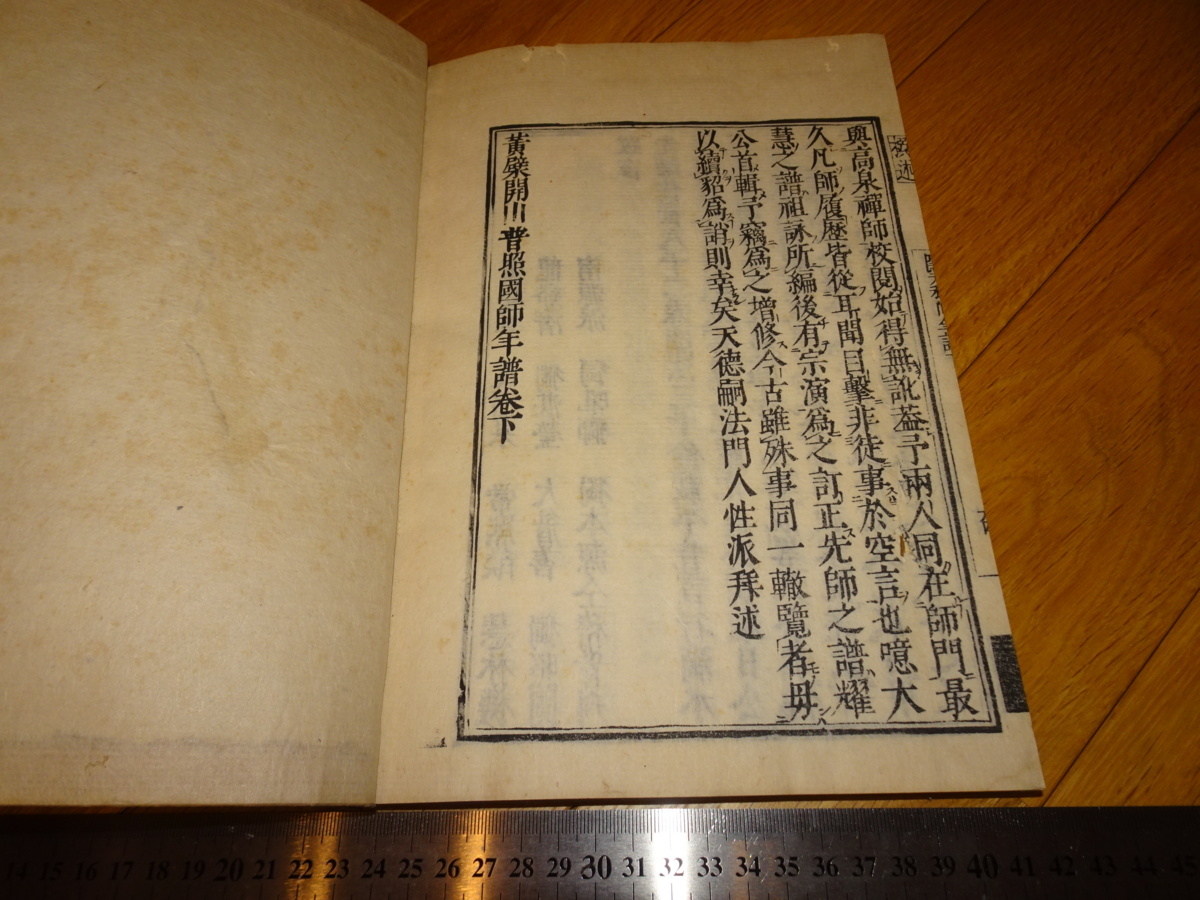 與高泉禪師校閱始得無訛葢予兩人同在師門最
久凡師履歷皆從耳聞目擊非徒事於空言也噫大
慧之譜祖詠所編後有宗演爲之訂正先師之譜耀
公首輯予竊爲之增修今古雖殊事同一轍覽者毋
以續貂爲誚則幸矣天德嗣法門人性派拜述
黃檗開山普照國師年譜卷下
14 15 16 17 18 19 20 21 22 23 24 25 26 27 28 29 30 31 32 33 34 35 36 37 38 39 40 41 42 43 44 45